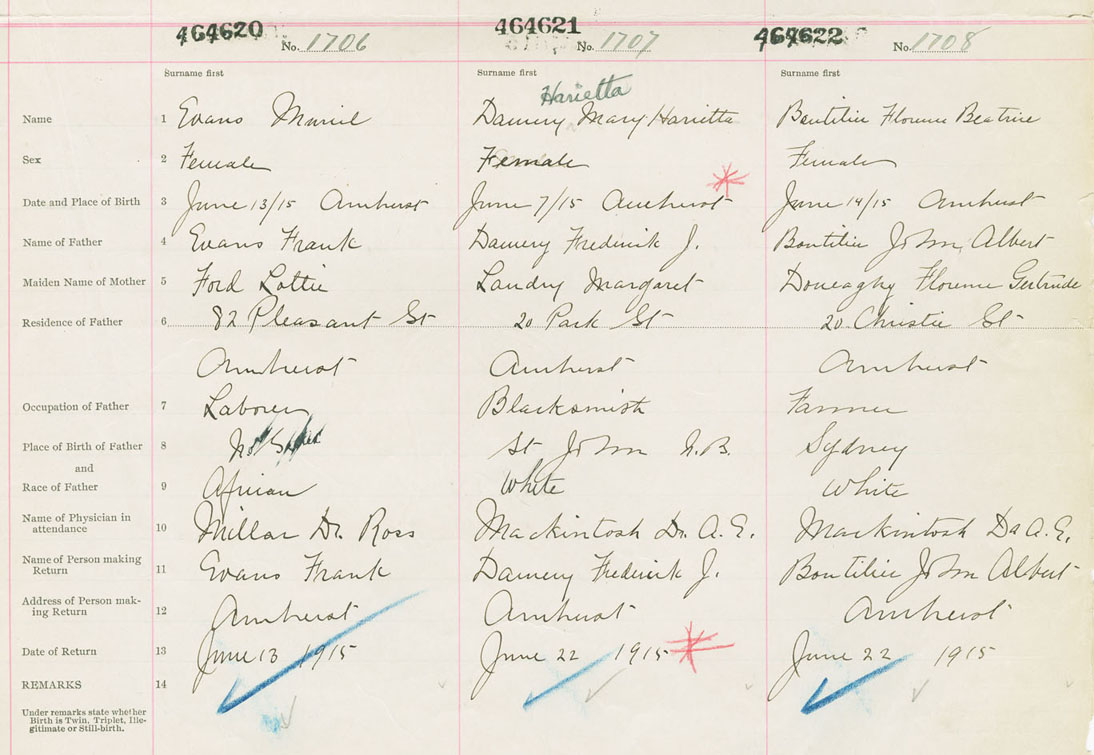 464620 No. 1706 464621 No. 1707 464622 No. 1708
Surname first Surname first Surname first
Harietta
Name 1 Evans Muriel Damery Mary Harietta Boutilier Florence Beatrice
Sex 2 Female Female Female
Date and Place of Birth 3 June 13/15 Amherst June 7/15 Amherst June 14/15 Amherst
Name of Father 4 Evans Frank Damery Frederick J. Boutilier John Albert
Maiden Name of Mother 5 Ford Lottie Landry Margaret Doneaghy Florence Gertrude
Residence of Father 6 82 Pleasant St 20 Park St 20 Christie St
Amherst Amherst Amherst
Occupation of Father 7 Laborer Blacksmith Farmer
Place of Birth of Father 8 St John N.B. Sydney
and
Race of Father 9 African White White
Name of Physician in
attendance 10 Millar Dr. Ross Mackintosh Dr. A. E. Mackintosh Dr A. E.
Name of Person making
Return 11 Evans Frank Damery Frederick J. Boutilier John Albert
Address of Person mak-
ing Return 12 Amherst Amherst Amherst
Date of Return 13 June 13 1915 June 22 1915 June 22 1915
REMARKS 14
Under remarks state whether
Birth is Twin, Triplet, Ille-
gitimate or Still-birth.